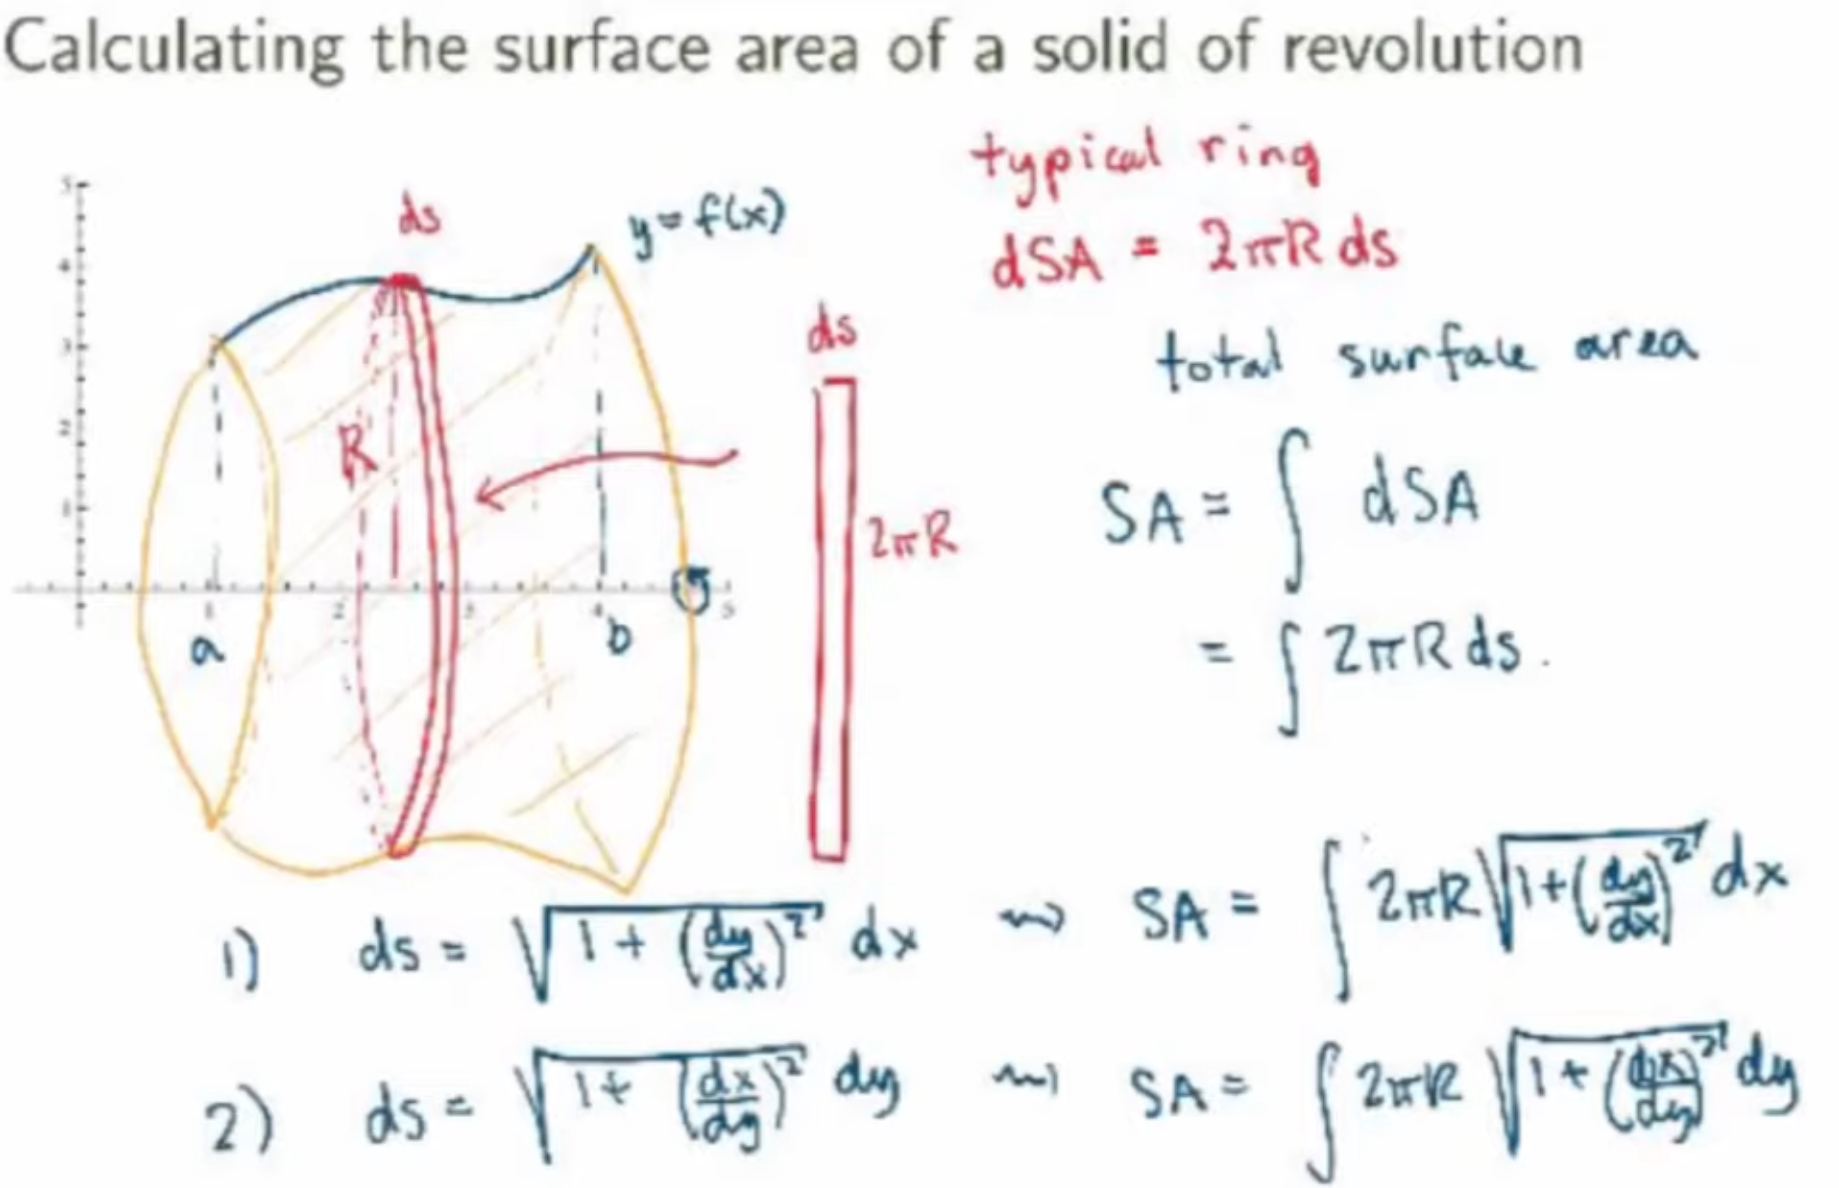 Calculating the surface area of a solid of revolution
typical ring
dSA = 2πR ds
ds
y = f(x)
5
4
3
2
1
R
1 2 3 4 5
a b
ds
2πR
total surface area
SA = ∫ dSA
= ∫ 2πR ds.
1) ds = √(1 + (dy/dx)²) dx ⇝ SA = ∫ 2πR √(1 + (dy/dx)²) dx
2) ds = √(1 + (dx/dy)²) dy ⇝ SA = ∫ 2πR √(1 + (dx/dy)²) dy